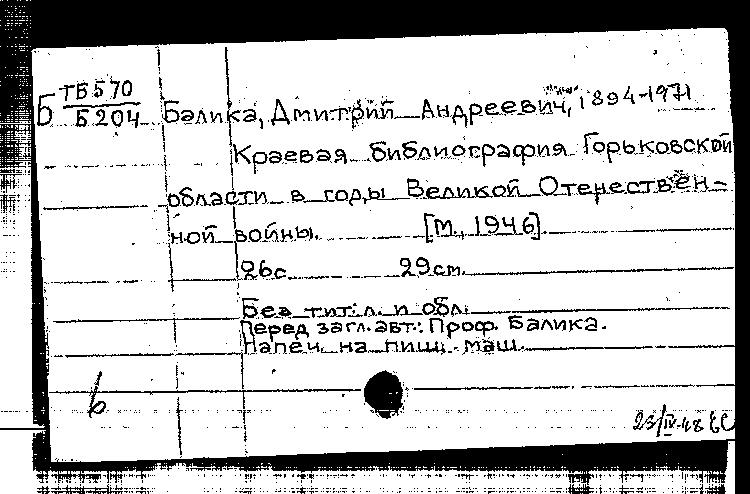 Б ТБ570
Б204
Балика, Дмитрий Андреевич, 1894-1971
Краевая библиография Горьковской
области в годы Великой Отечествен-
ной войны. [М., 1946].
26с. 29см.
Без тит. л. и обл.
Перед загл. авт.: Проф. Балика.
Напеч. на пиш. маш.
b
23/IV-48